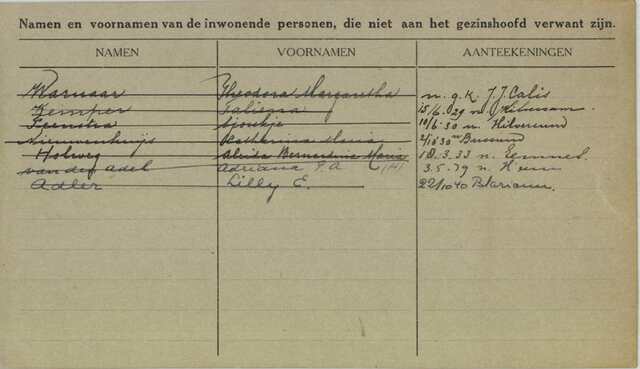 Namen en voornamen van de inwonende personen, die niet aan het gezinshoofd verwant zijn.
NAMEN VOORNAMEN AANTEEKENINGEN
Warnaar Theodora Margaretha n. g. k. J.J. Calis
Kemper 15/6.029 n. Hilversum.
Feenstra Sjoukje 10/6.30 n. Hilversum
Nieuwenhuijs Catharina Maria 2/10 30 n Bussum
Holweg Alrida Bernardina Maria 18.3.33 n. Eemnes.
van den Adel Adriana P.A (H) 3.5.79 n.
Adler Lilly E. 22/10 40 Blaricum.